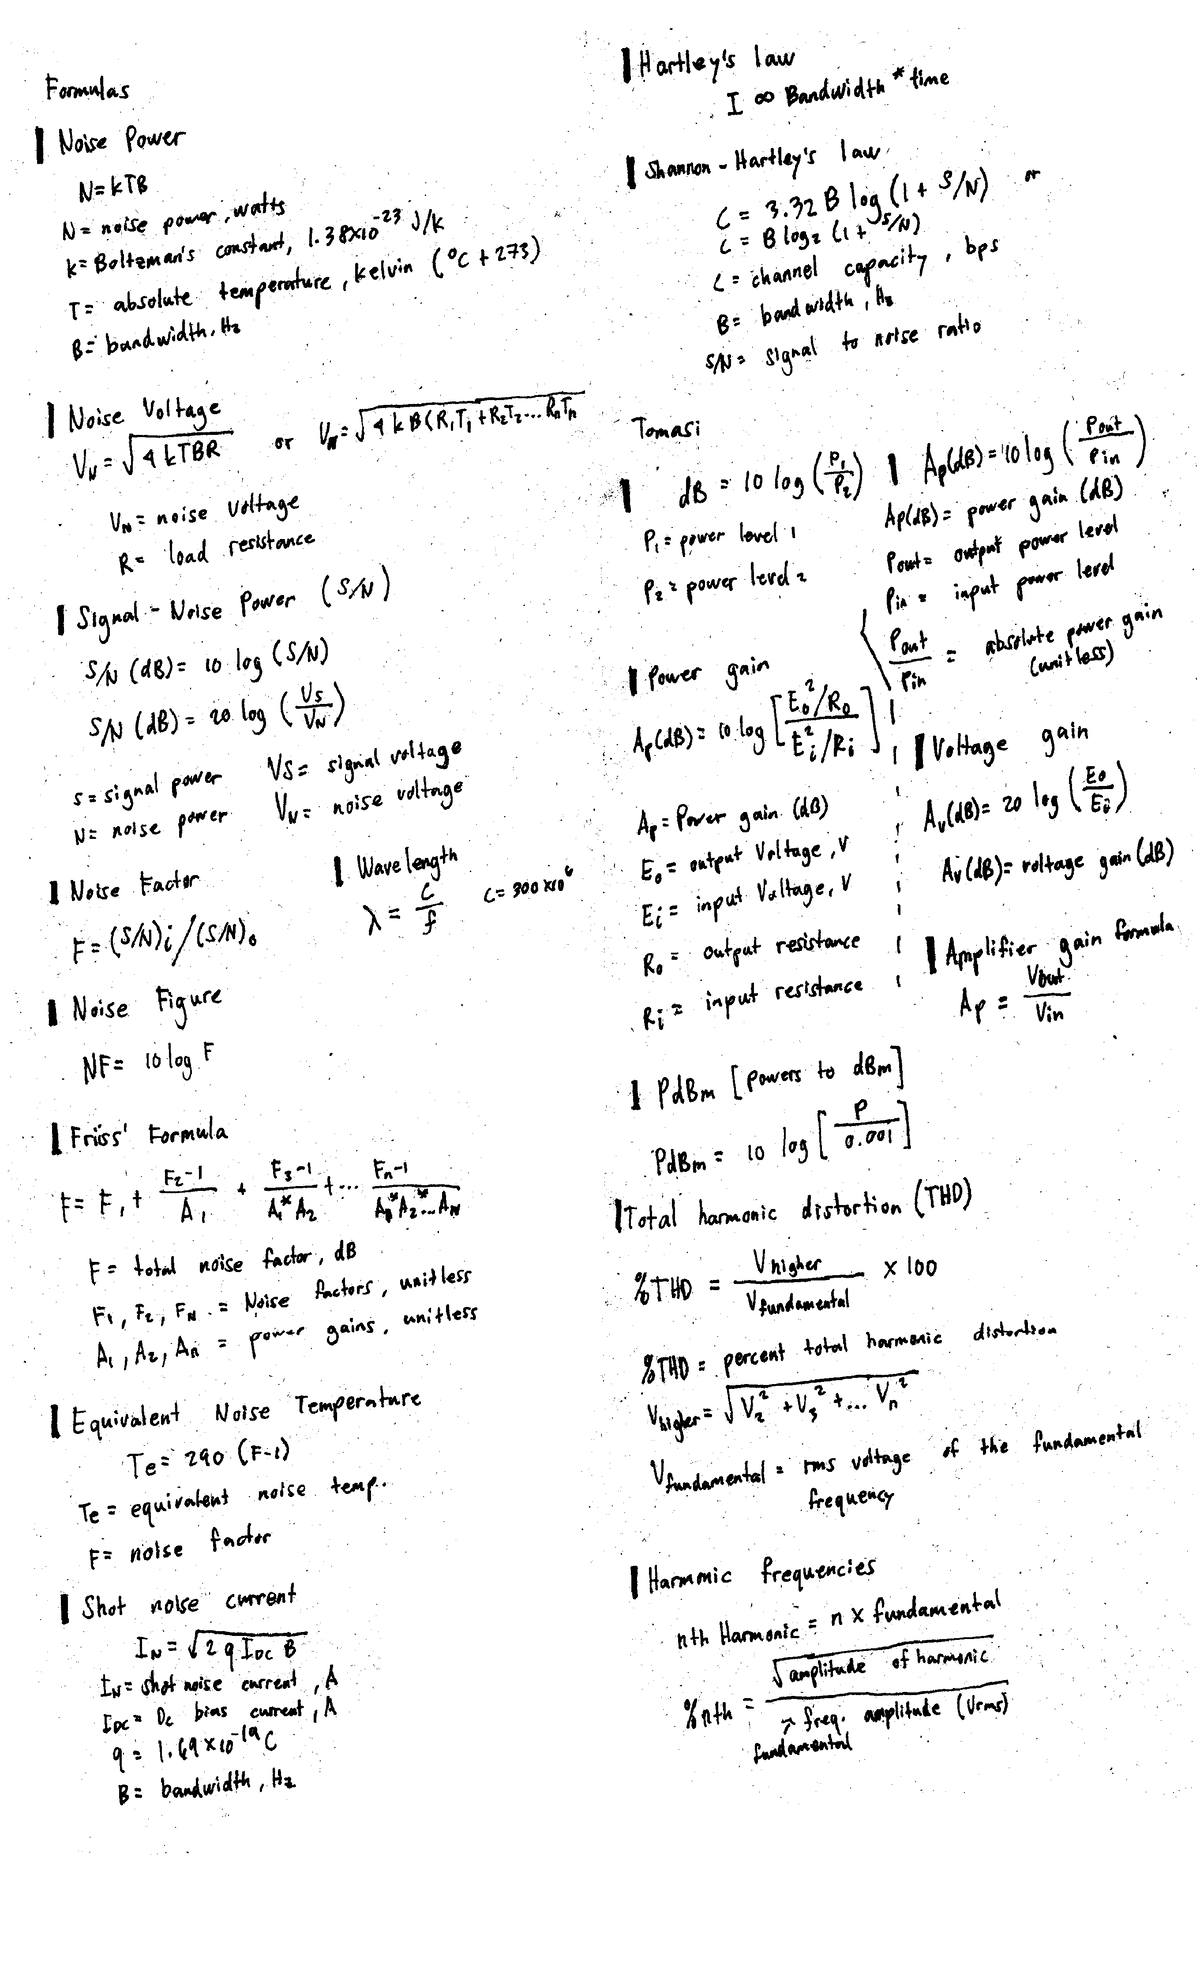 Formulas
Noise Power
N=kTB
N= noise power, watts
k= Boltzman's constant, 1.38x10^-23 J/k
T= absolute temperature, kelvin (°C + 273)
B= bandwidth, Hz
Noise Voltage
V_N = √4kTBR or V_N = √4kB(R₁T₁+R₂T₂... RnTn
V_N = noise voltage
R= load resistance
Signal - Noise Power (S/N)
S/N (dB) = 10 log (S/N)
S/N (dB) = 20 log (Vs/V_N)
s = signal power VS = signal voltage
N= noise power V_N = noise voltage
Noise Factor
F = (S/N)i / (S/N)o
Wavelength
λ = c/f c = 300 x10^6
Noise Figure
NF= 10 log F
Friiss' Formula
F = F₁ + F₂-1/A₁ + F₃-1/A₁*A₂ + ... Fn-1/A₁*A₂*...A_N
F= total noise factor, dB
F₁, F₂, F_N = Noise factors, unitless
A₁, A₂, An = power gains, unitless
Equivalent Noise Temperature
Te = 290 (F-1)
Te = equivalent noise temp.
F= noise factor
Shot noise current
I_N = √2 q I_DC B
I_N = shot noise current, A
I_DC = Dc bias current, A
q = 1.69 x10^-19 C
B = bandwidth, Hz
Hartley's law
I ∞ Bandwidth * time
Shannon - Hartley's law
C = 3.32 B log (1 + S/N) or
C = B log₂ (1 + S/N)
C = channel capacity, bps
B= bandwidth, Hz
S/N = signal to noise ratio
Tomasi
dB = 10 log (P₁/P₂)
P₁ = power level 1
P₂ = power level 2
Ap(dB) = 10 log (Pout/Pin)
Ap(dB) = power gain (dB)
Pout = output power level
Pin = input power level
Pout/Pin = absolute power gain
(unitless)
Power gain
Ap(dB) = 10 log [Eo²/Ro / Ei²/Ri]
Ap = Power gain (dB)
Eo = output Voltage, V
Ei = input Voltage, V
Ro = output resistance
Ri = input resistance
Voltage gain
Av(dB) = 20 log (Eo/Ei)
Av(dB) = voltage gain (dB)
Amplifier gain formula
Ap = Vout/Vin
PdBm [Powers to dBm]
PdBm = 10 log [P/0.001]
Total harmonic distortion (THD)
%THD = Vhigher/Vfundamental x 100
%THD = percent total harmonic distortion
Vhigher = √V₂² + V₃² + ... Vn²
Vfundamental = rms voltage of the fundamental
frequency
Harmonic frequencies
nth Harmonic = n x fundamental
%nth = √amplitude of harmonic / freq. amplitude (Vrms)
fundamental